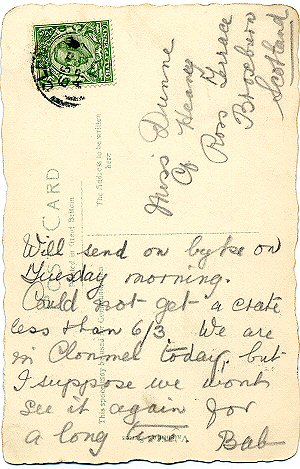 Miss Dunne
C/o Heaney
Ross Terrace
Scotland
POST CARD
The Address to be written
here
Will send on byke on
Tuesday morning.
Could not get a crate
less than 6/3. We are
in Clonmel today, but
I suppose we wont
see it again for
a long time
Bab